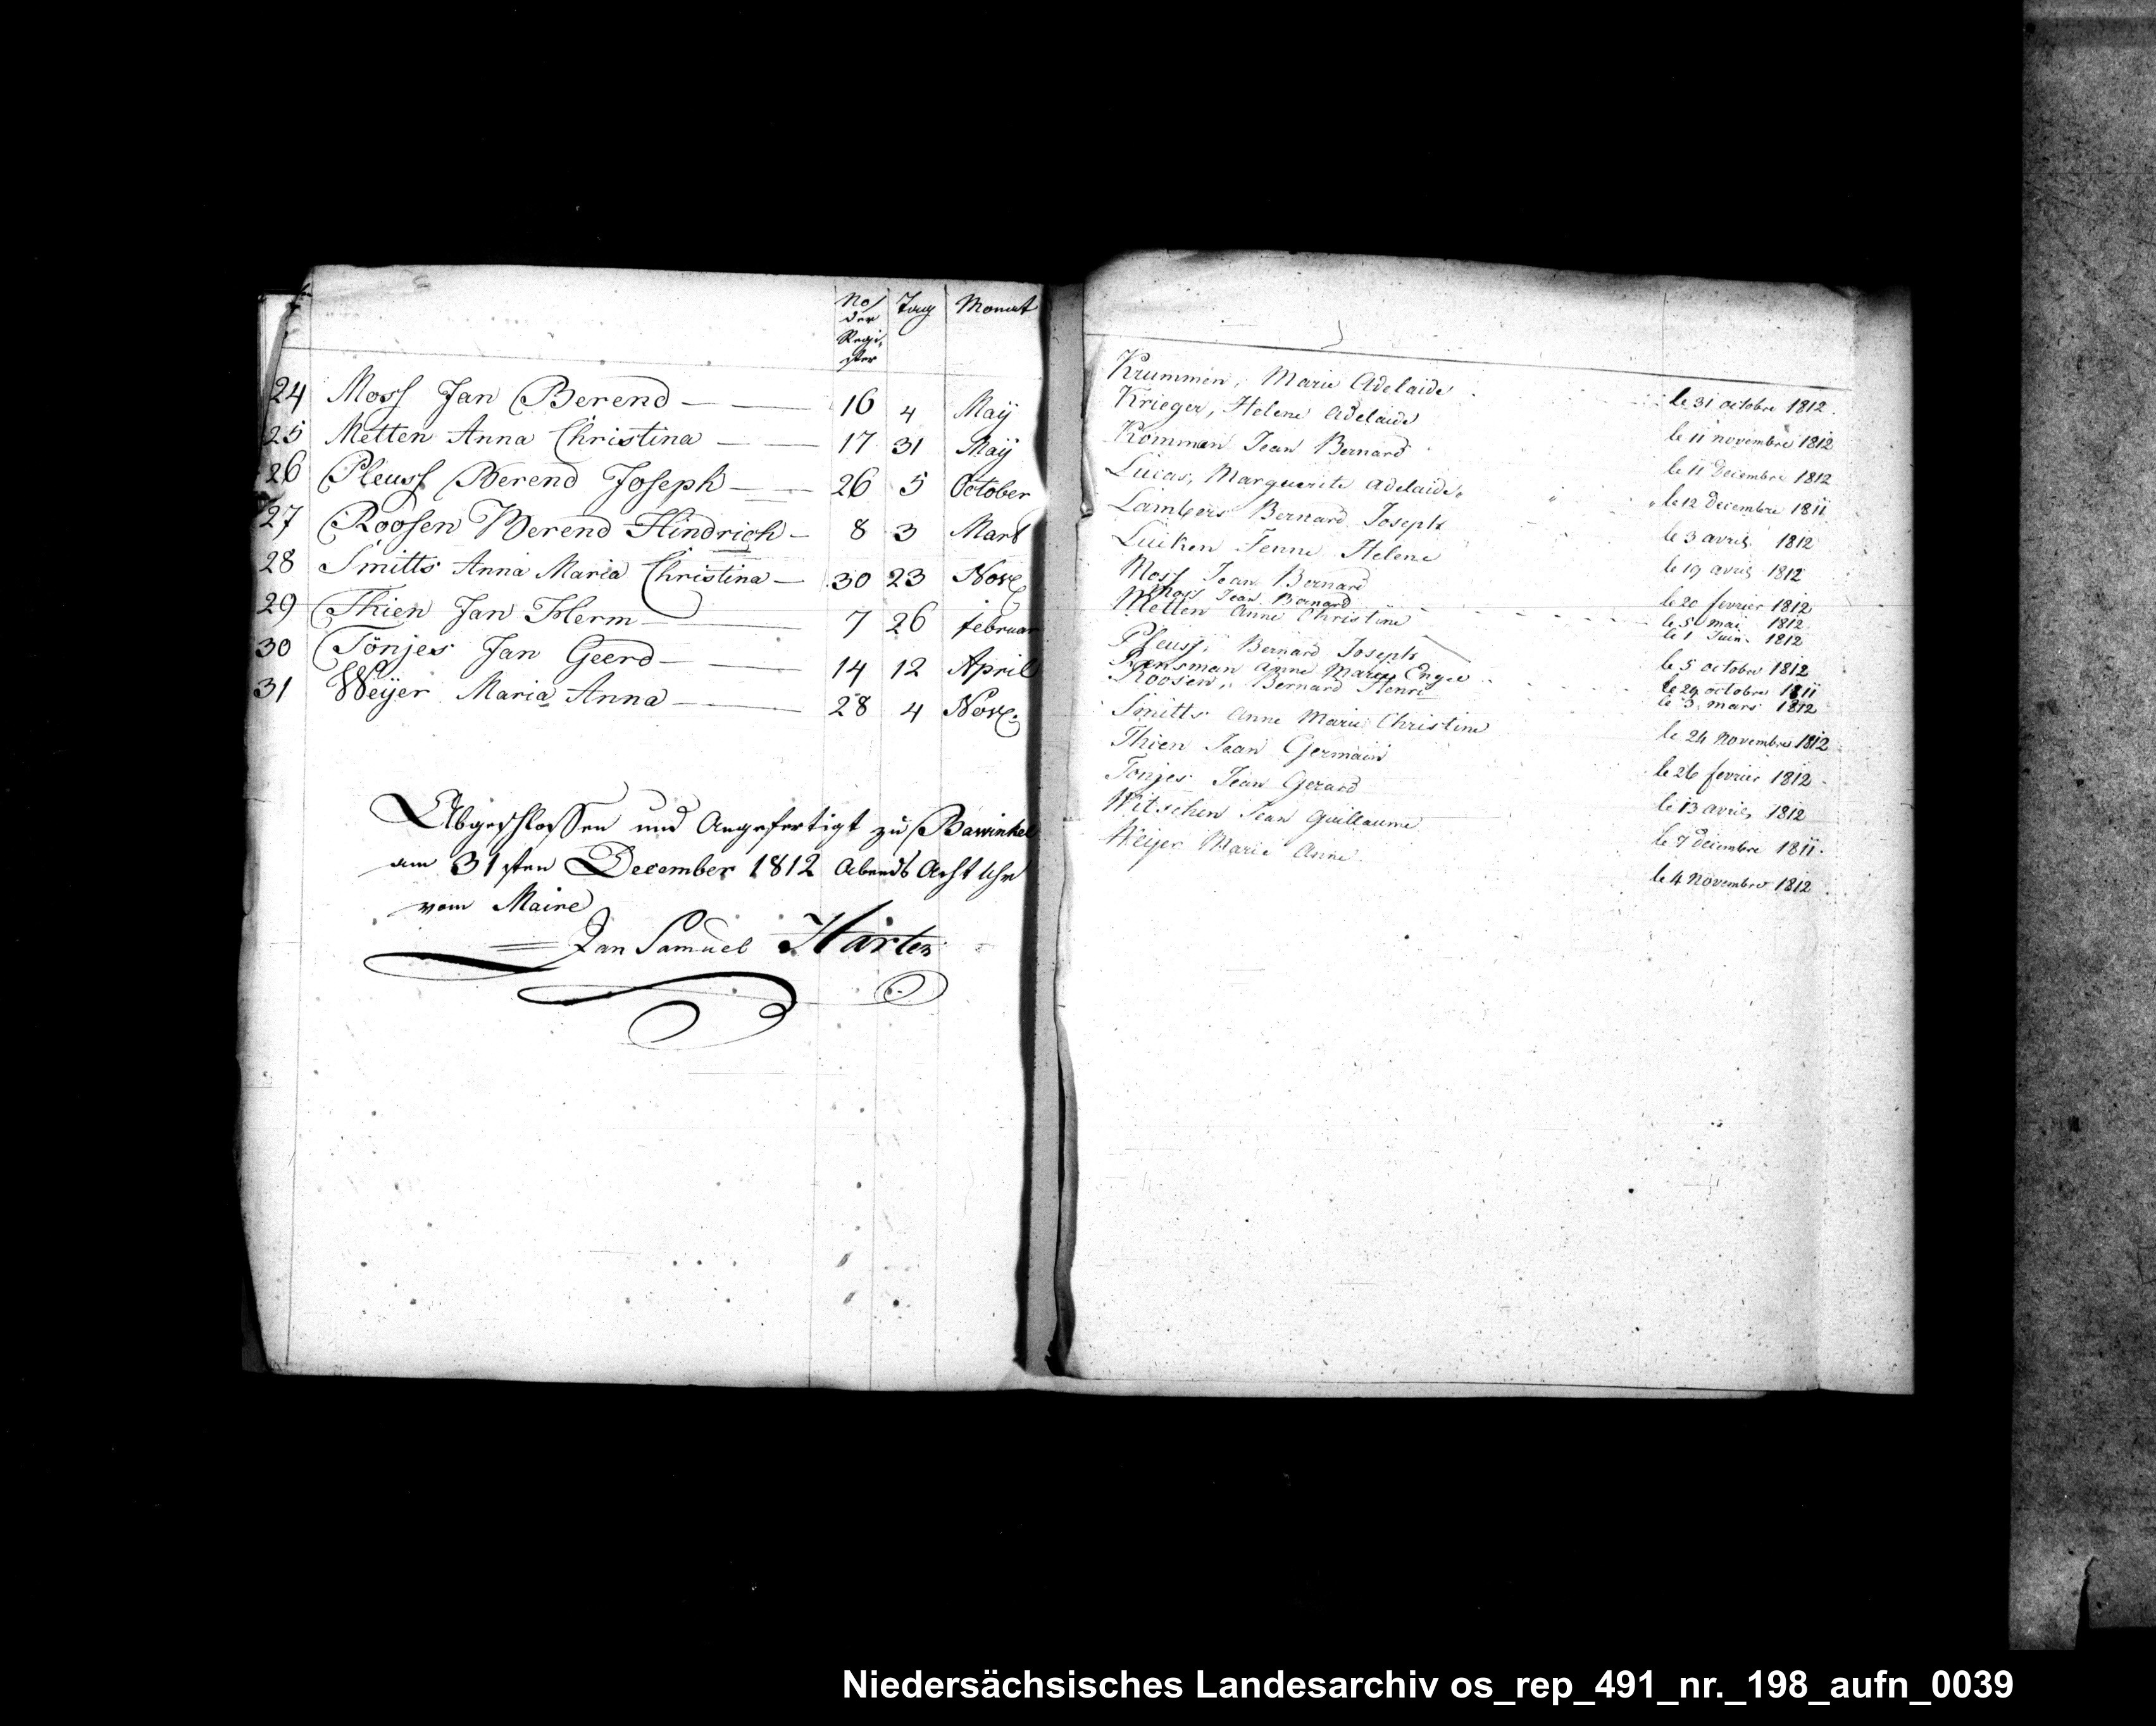 No/ Tag Monat
der
Regi-
ster
24 Moss Jan Berend 16 4 Maÿ
25 Metten Anna Christina 17 31 Maÿ
26 Pleuss Berend Joseph 26 5 October
27 Roosen Berend Hindrich 8 3 Mart
28 Smitts Anna Maria Christina 30 23 Nove
29 Thien Jan Herm 7 26 februar
30 Tönjes Jan Geerd 14 12 April
31 Weÿer Maria Anna 28 4 Nove.
Abgeschlossen und Angefertigt zu Bawinkel
am 31sten December 1812 Abends Acht Uhr
vom Maire
Jan Samuel Härten
Krummen, Marie Adelaide le 31 octobre 1812.
Krieger, Helene Adelaide le 11 novembre 1812
Kommen Jean Bernard le 11 Decembre 1812
Lucas, Marguerite Adelaide le 12 Decembre 1811
Lambers Bernard Joseph le 3 avril 1812
Lüiken Fenne Helene le 19 avril 1812
Moss Jean Bernard le 20 fevrier 1812
Moss Jean Bernard le 5 mai 1812
Metten Anne Christine le 1 Juin 1812
Pleuss, Bernard Joseph le 5 octobre 1812
Rensman Anne Marie Engel le 29 octobre 1811
Roosen, Bernard Henri le 3 mars 1812
Smitts Anne Marie Christine le 24 Novembre 1812
Thien Jean Germain le 26 fevrier 1812
Tonjes Jean Gerard le 13 avril 1812
Witschen Jean Guillaume le 7 Decembre 1811.
Weijer Marie Anne le 4 Novembre 1812
Niedersächsisches Landesarchiv os_rep_491_nr._198_aufn_0039